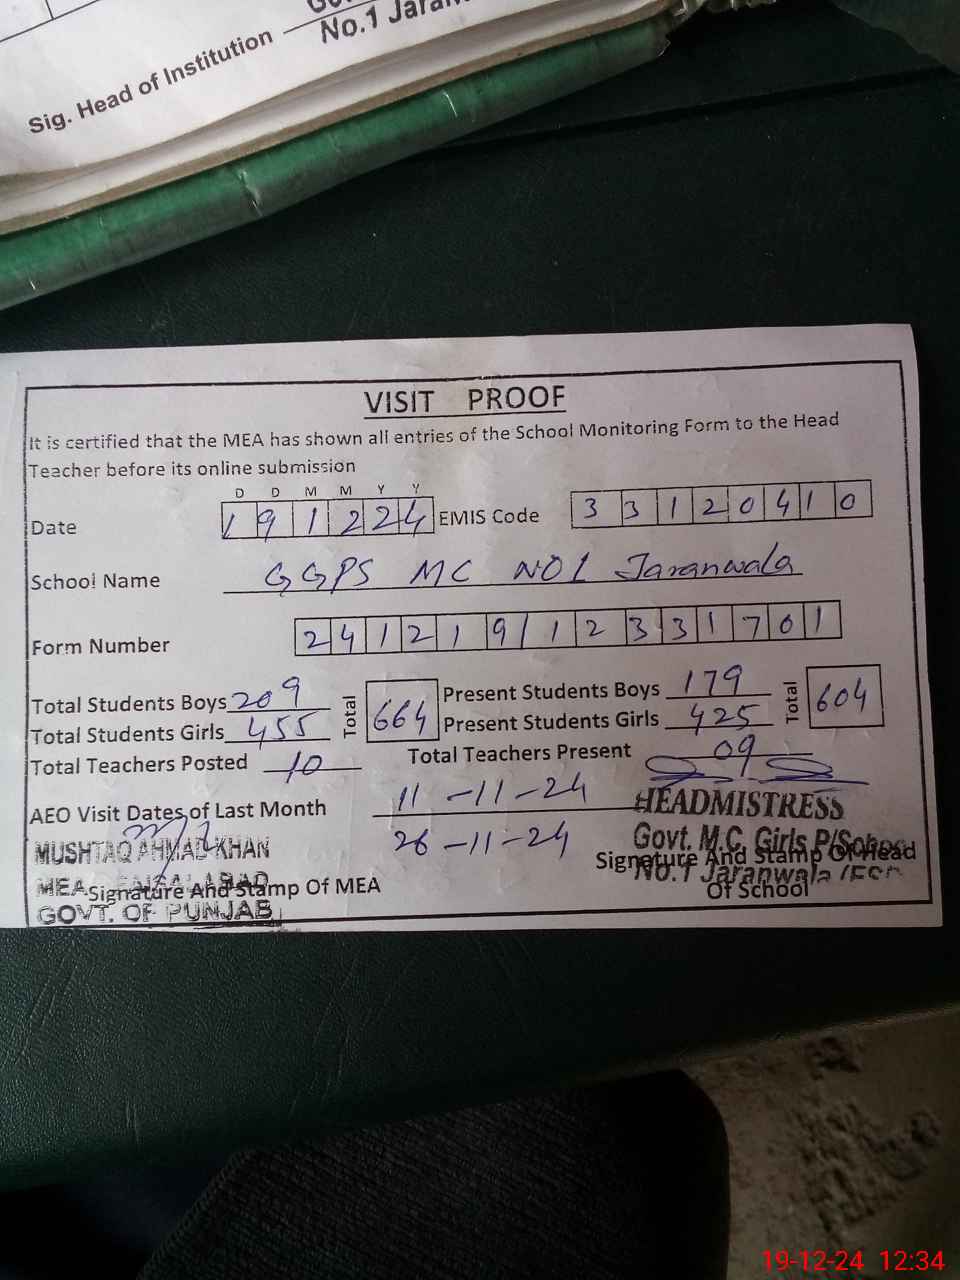 No.1 Jaran
Sig. Head of Institution
VISIT PROOF
It is certified that the MEA has shown all entries of the School Monitoring Form to the Head
Teacher before its online submission
D D M M Y Y
Date 1 9 1 2 2 4 EMIS Code 3 3 1 2 0 4 1 0
School Name GGPS MC NO 1 Jaranwala
Form Number 2 4 1 2 1 9 1 1 2 3 3 1 7 0 1
Total Students Boys 209 Total 664 Present Students Boys 179 Total 604
Total Students Girls 455 Present Students Girls 425
Total Teachers Posted 10 Total Teachers Present 09
AEO Visit Dates of Last Month 11-11-24
26-11-24
HEADMISTRESS
MUSHTAQ AHMAD KHAN
Govt. M.C. Girls P/School
Signature And Stamp Of Head
MEA FAISALABAD
No.1 Jaranwala
Signature And Stamp Of MEA
Of School
GOVT. OF PUNJAB
19-12-24 12:34